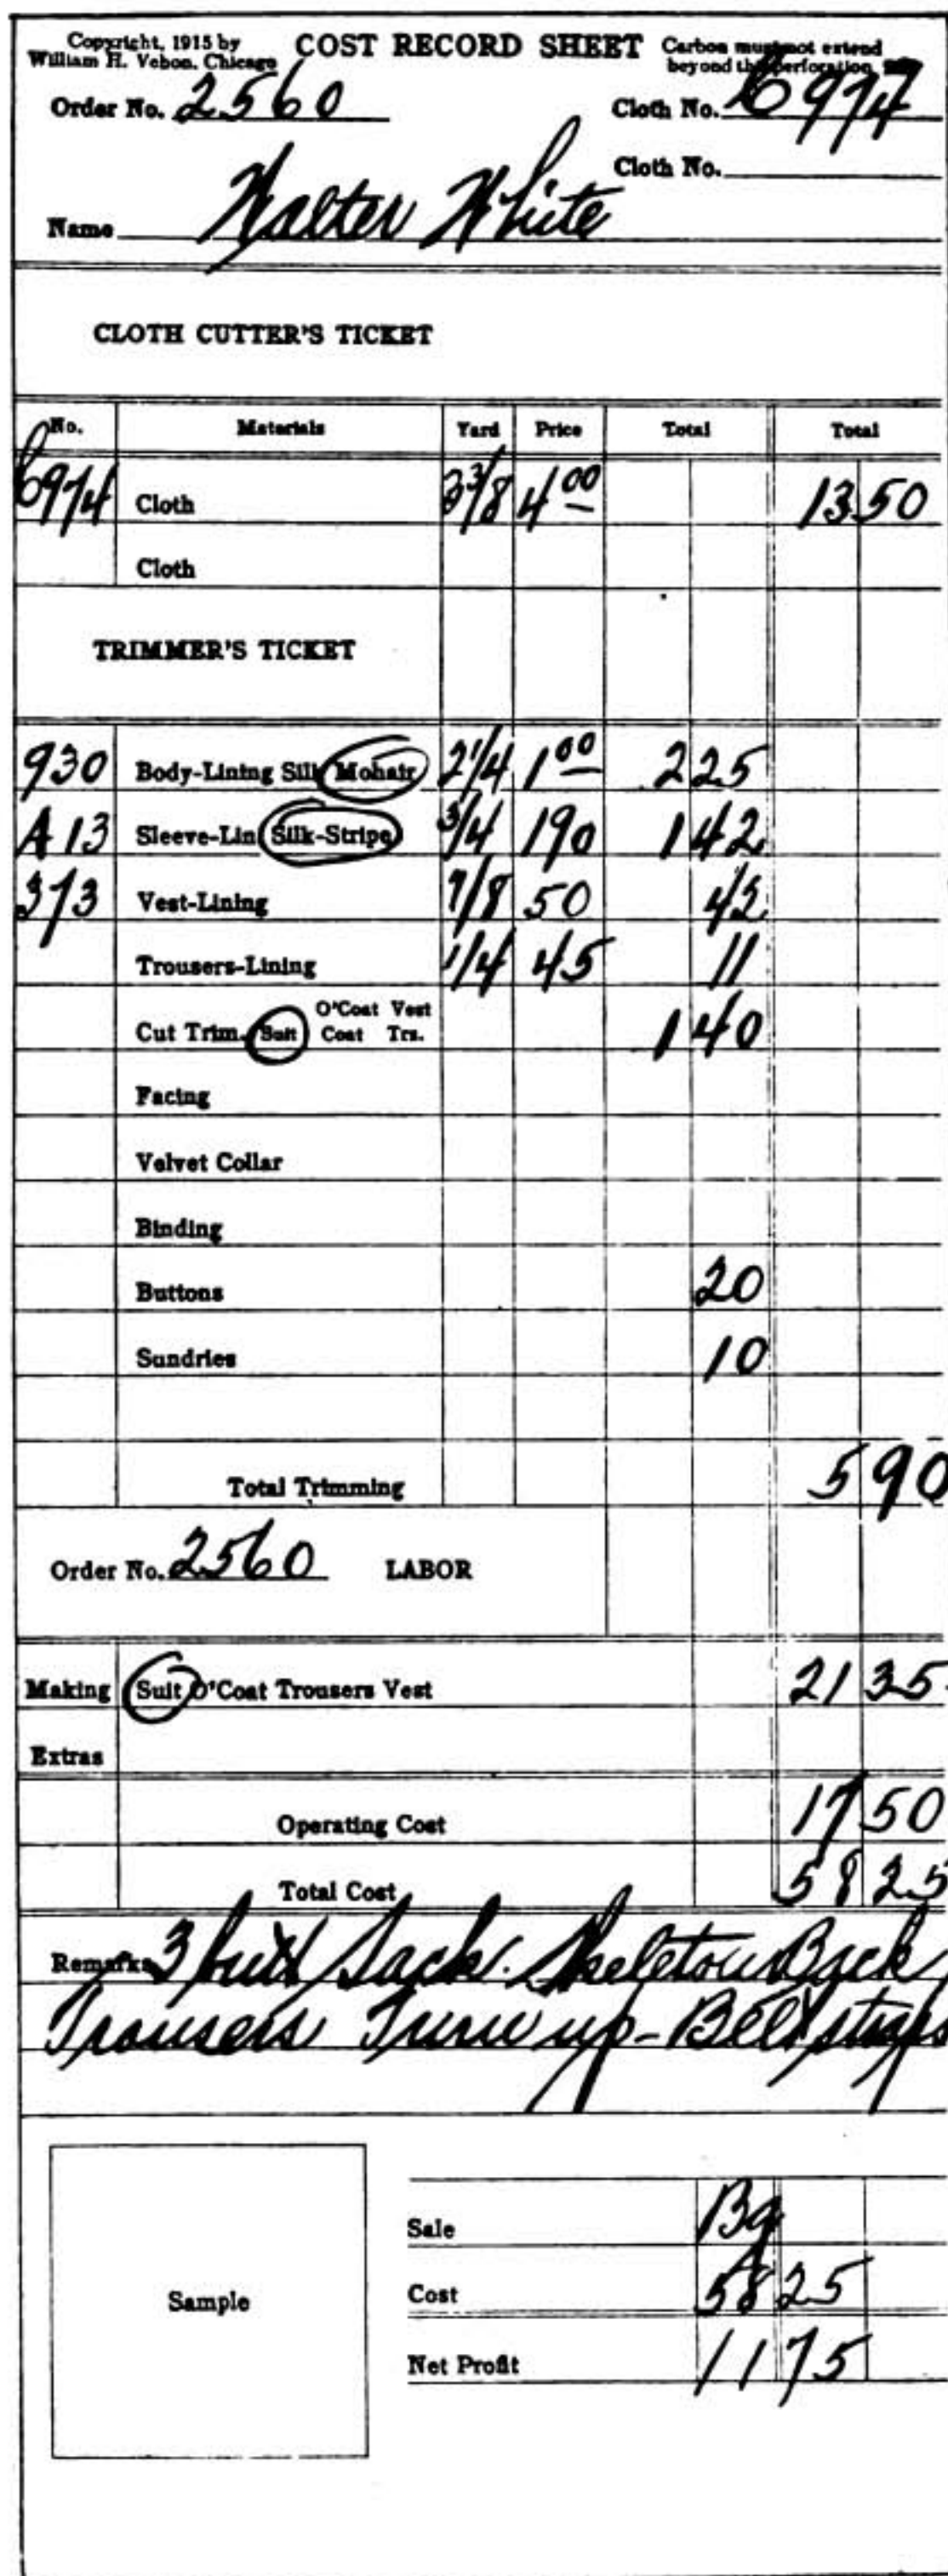 Copyright, 1915 by
William H. Vebon. Chicago
COST RECORD SHEET
Carbon must not extend
beyond this perforation
Order No. 2560
Cloth No. 6974
Cloth No.
Name Walter White
CLOTH CUTTER'S TICKET
No. Materials Yard Price Total Total
6974 Cloth 3 3/8 4 00 13 50
Cloth
TRIMMER'S TICKET
930 Body-Lining Silk Mohair 2 1/4 1 00 2 25
A 13 Sleeve-Lin Silk-Stripe 3/4 190 1 42
373 Vest-Lining 7/8 50 42
Trousers-Lining 1/4 45 11
Cut Trim. Suit O'Coat Vest
Coat Trs. 1 40
Facing
Velvet Collar
Binding
Buttons 20
Sundries 10
Total Trimming 5 90
Order No. 2560 LABOR
Making Suit O'Coat Trousers Vest 21 35
Extras
Operating Cost 17 50
Total Cost 58 25
Remarks 3 butt Sack. Skeleton Back
Trousers Turn up - Belt straps
Sample
Sale
Cost 58 25
Net Profit 11 75